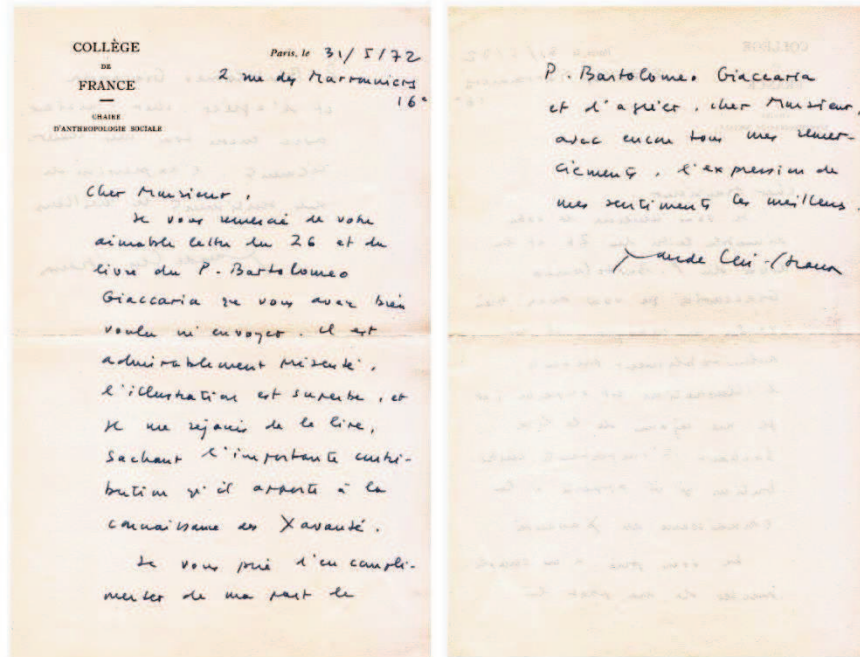 COLLÈGE
DE
FRANCE
CHAIRE
D'ANTHROPOLOGIE SOCIALE
Paris, le 31/5/72
2 rue des Marronniers
16e
Cher Monsieur,
Je vous remercie de votre
aimable lettre du 26 et du
livre du P. Bartolomeo
Giaccaria que vous avez bien
voulu m'envoyer. Il est
admirablement présenté,
l'illustration est superbe, et
je me réjouis de le lire,
sachant l'importante contri-
bution qu'il apporte à la
connaissance des Xavanté.
Je vous prie d'en compli-
menter de ma part le
P. Bartolomeo Giaccaria
et d'agréer, cher Monsieur,
avec encore tous mes remer-
ciements, l'expression de
mes sentiments les meilleurs.
Claude Lévi-Strauss